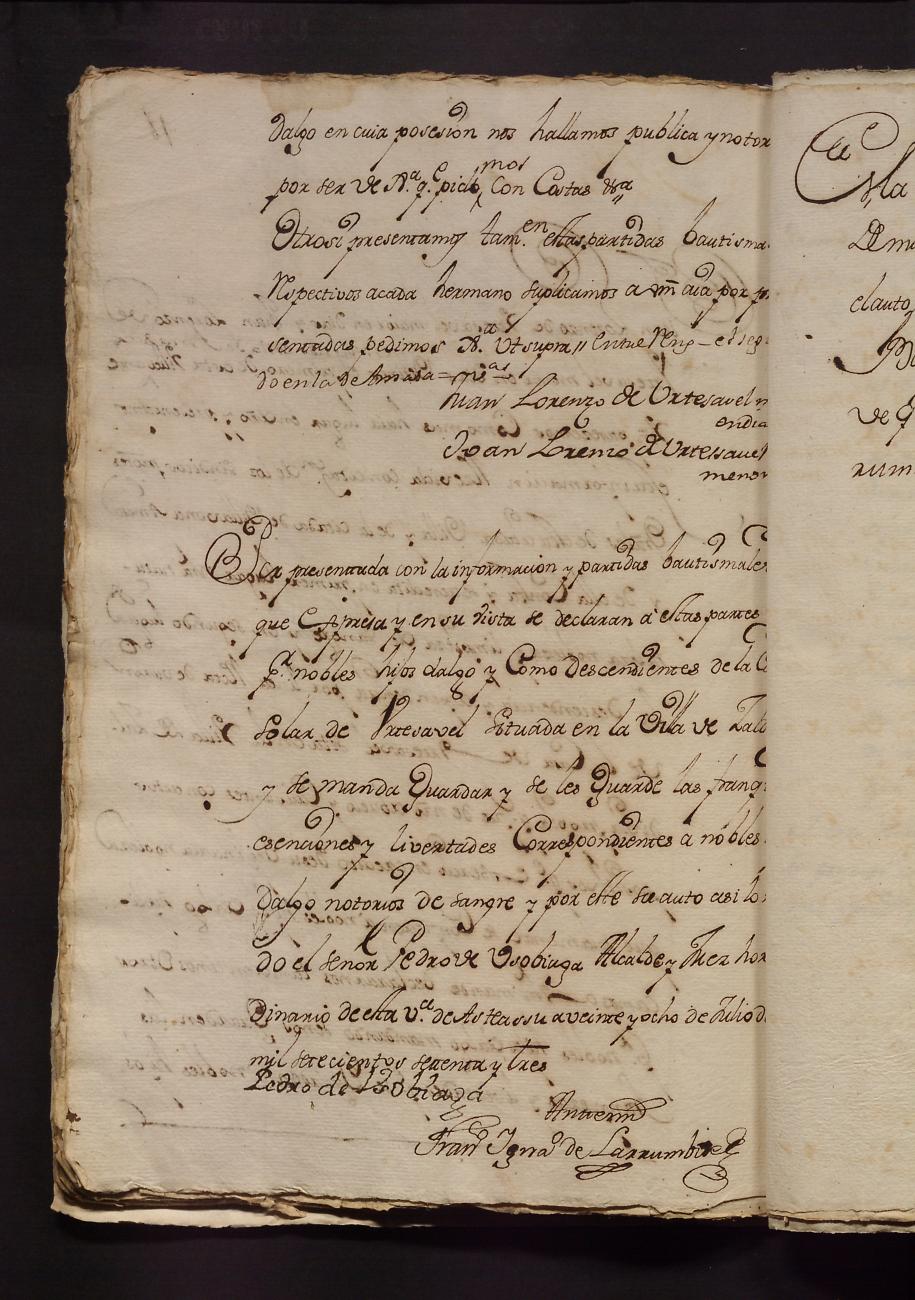 dalgo en cuia posesion nos hallamos publica y notor
por ser de Jta. q.e pidimos con Costas &a
Otrosi presentamos tamen. estas partidas bautisma
Respectivos acada hermano suplicamos a vm aia por p
sentadas pedimos Jta. Ut supra // Entre Reng
do en la de
Juan Lorenzo de Vrtesavel m
en dia
Joan Lorenzo de Vrtessavel
menor
Por presentada con la informacion y partidas bautismales
que Expresa y en su vista se declaran â estas partes
Pr. nobles hijos dalgo y Como Descendientes de la C
solar de Vrtesavel situada en la Villa de Zald
y se manda Guardar y se les Guarde las franq
esenciones y livertades Correspondientes a nobles
dalgo notorios de sangre y por este su auto asi lo
do el señor Pedro de Vsobiaga Alcalde y Juez hor
dinario de esta v.a de Asteassu a veinte y ocho de Julio d
mil setecientos setenta y tres
Pedro de Vsobiaga
Ante mi
Franco Ignao de Larrumbide
En la
el auto
de
rum